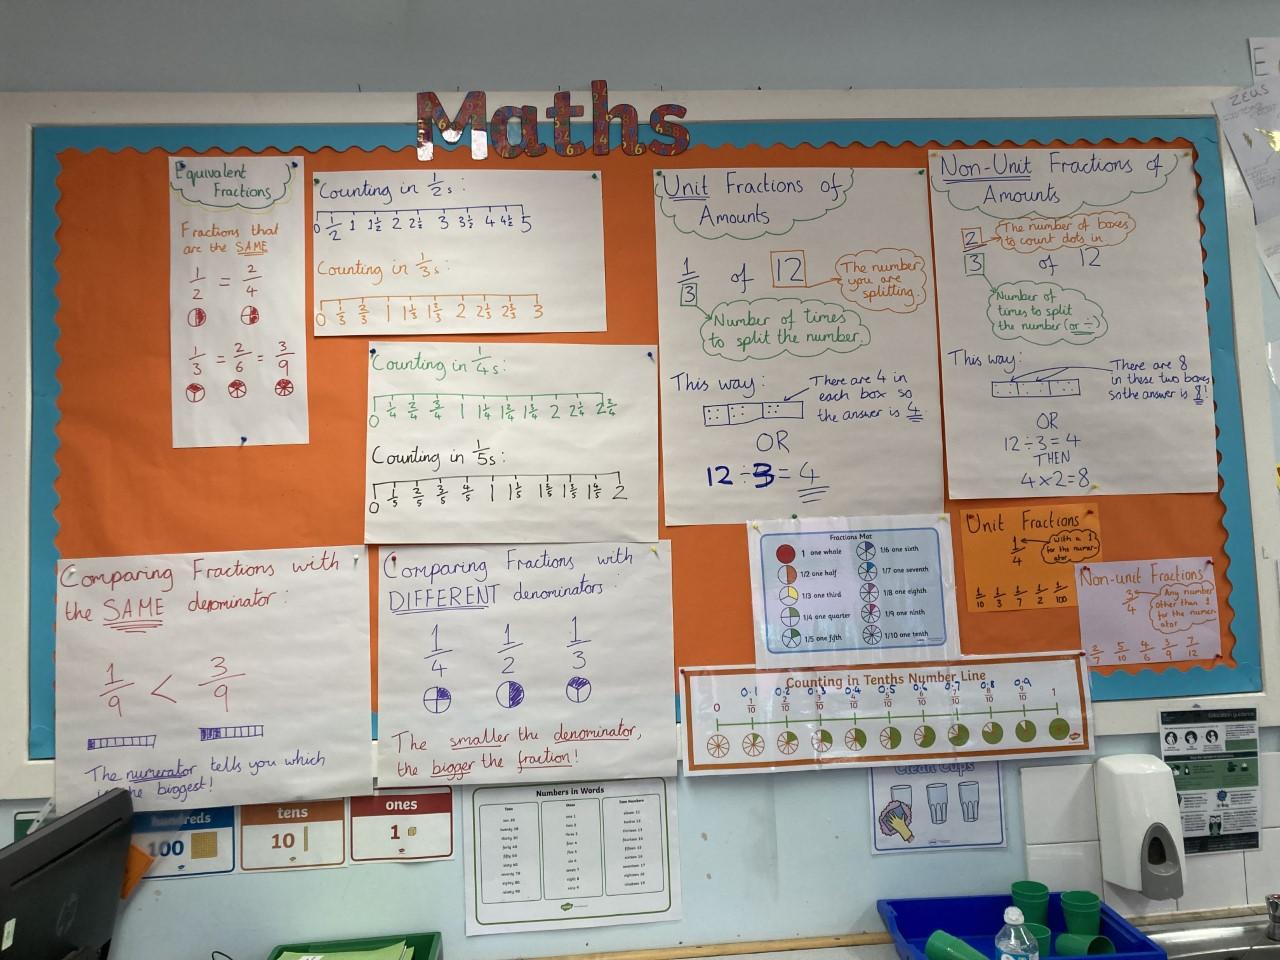 Maths
Equivalent
Fractions
Fractions that
are the SAME
1/2 = 2/4
1/3 = 2/6 = 3/9
Counting in 1/2s:
0 1/2 1 1 1/2 2 2 1/2 3 3 1/2 4 4 1/2 5
Counting in 1/3s:
0 1/3 2/3 1 1 1/3 1 2/3 2 2 1/3 2 2/3 3
Counting in 1/4s:
0 1/4 2/4 3/4 1 1 1/4 1 2/4 1 3/4 2 2 1/4 2 2/4
Counting in 1/5s:
0 1/5 2/5 3/5 4/5 1 1 1/5 1 2/5 1 3/5 1 4/5 2
Unit Fractions of
Amounts
1/3 of 12
The number
you are
splitting.
Number of times
to split the number.
This way:
There are 4 in
each box so
the answer is 4.
OR
12 ÷ 3 = 4
Non-Unit Fractions of
Amounts
2/3 of 12
The number of boxes
to count dots in
Number of
times to split
the number (or ÷)
This way:
There are 8
in these two boxes
so the answer is 8!
OR
12 ÷ 3 = 4
THEN
4 x 2 = 8
Comparing Fractions with
the SAME denominator:
1/9 < 3/9
The numerator tells you which
is the biggest!
Comparing Fractions with
DIFFERENT denominators:
1/4 1/2 1/3
The smaller the denominator,
the bigger the fraction!
Fractions Mat
1 one whole
1/2 one half
1/3 one third
1/4 one quarter
1/5 one fifth
1/6 one sixth
1/7 one seventh
1/8 one eighth
1/9 one ninth
1/10 one tenth
Unit Fractions
1/4
with a 1
for the numer-
ator
1/10 1/3 1/7 1/2 1/100
Non-unit Fractions
3/4
Any number
other than 1
for the numer-
ator
2/7 5/10 4/6 3/9 7/12
Counting in Tenths Number Line
0.1 0.2 0.3 0.4 0.5 0.6 0.7 0.8 0.9
0 1/10 2/10 3/10 4/10 5/10 6/10 7/10 8/10 9/10 1
hundreds
100
tens
10
ones
1
Numbers in Words
Tens
Ones
Teen Numbers
Clean Cups
ZEUS
E